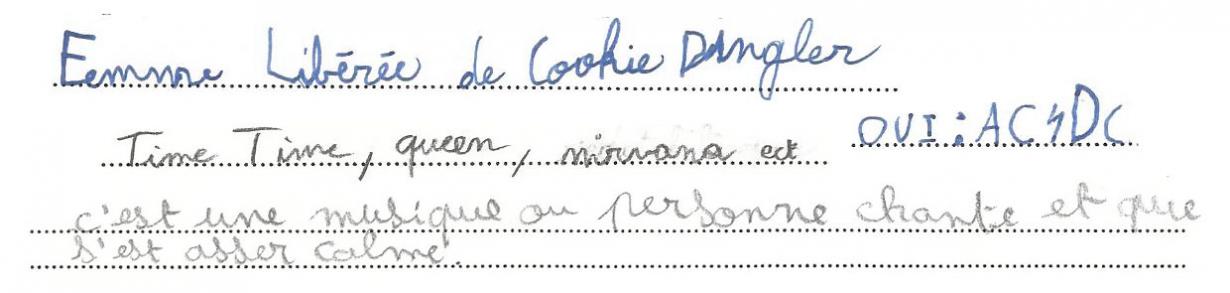 Femme Libérée de Cookie Dingler
OUI : AC⚡DC
Time Time, queen, nirvana ect
c'est une musique ou personne chante et que
s'est asser calme.